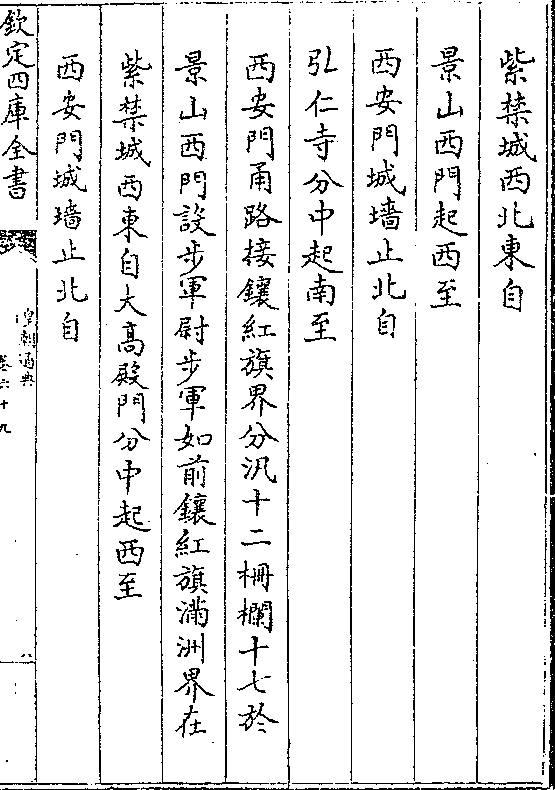 紫禁城西北東自
景山西門起西至
西安門城墻止北自
弘仁寺分中起南至
西安門甬路接鑲紅旗界分汛十二柵欄十七於
景山西門設步軍尉步軍如前鑲紅旗滿洲界在
紫禁城西東自大高殿門分中起西至
西安門城墻止北自
欽定四庫全書
皇朝通典
卷六十九
八